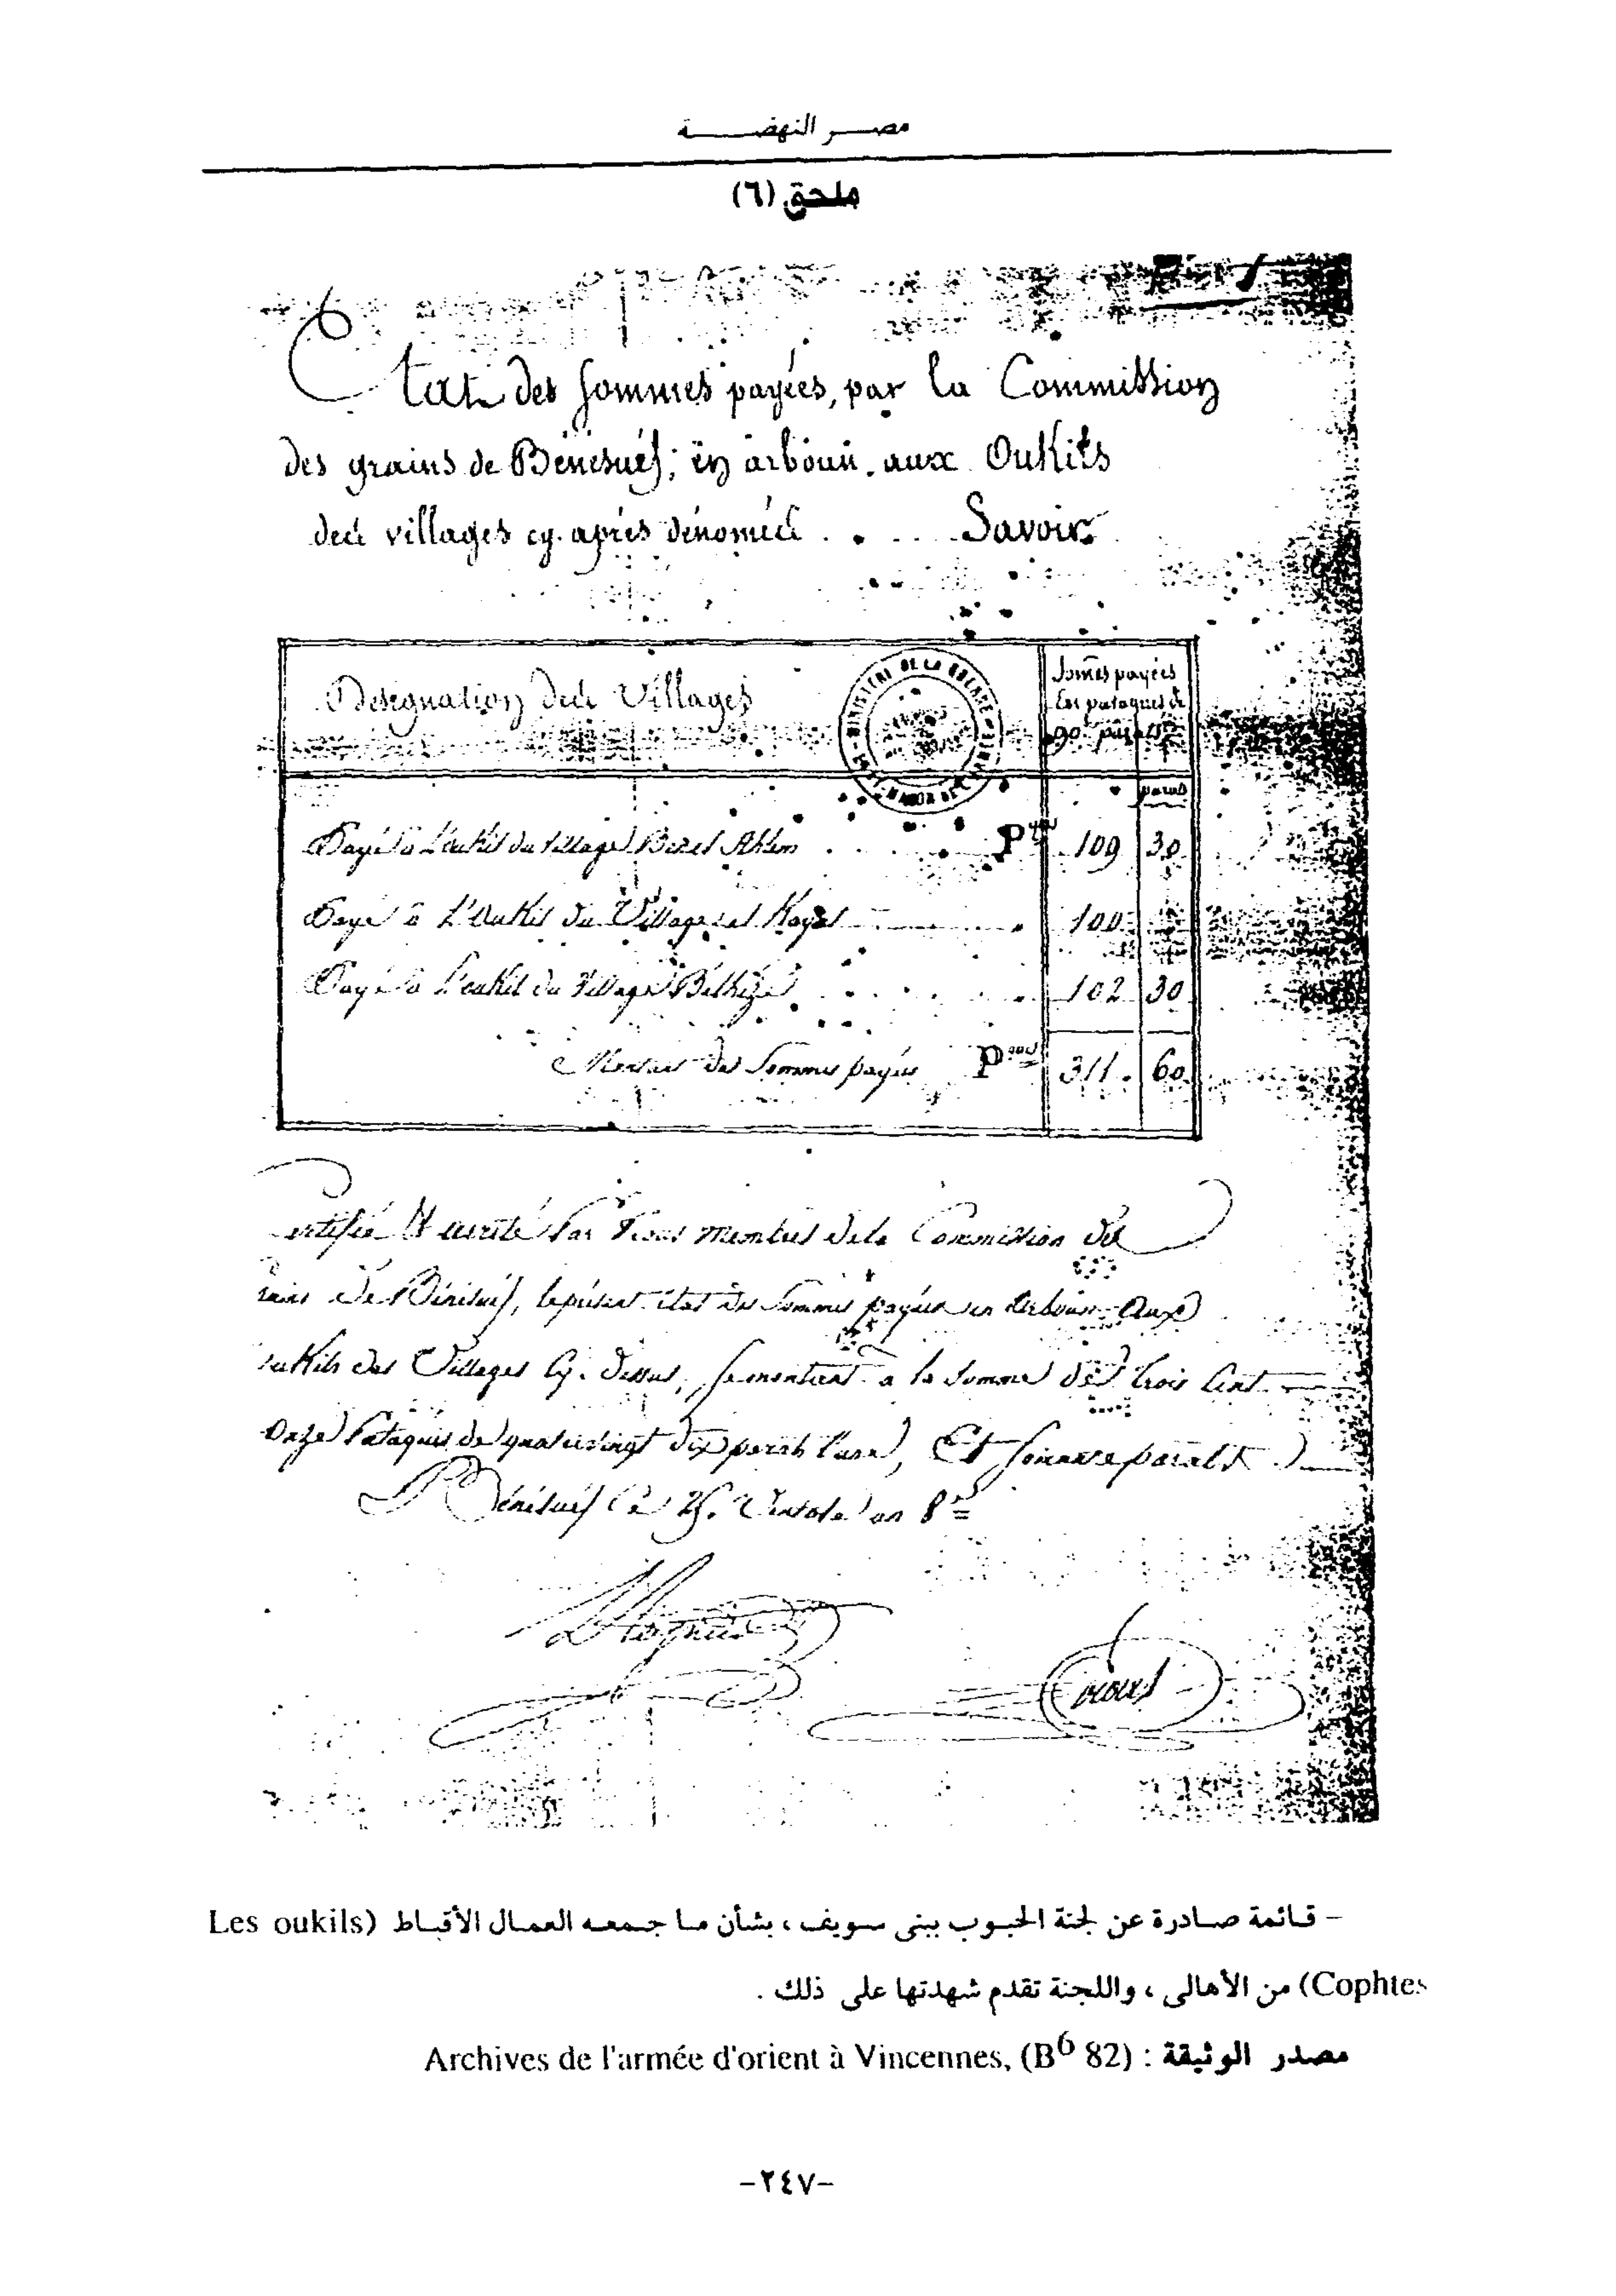 مصر النهضة
ملحق (٦)
Etat des sommes payées, par la Commission
des grains de Bénésuéf; en arboun. aux Oukils
des villages cy. aprés dénomés . . . . Savoir
Designation des Villages
MINISTERE DE LA GUERRE
Somes payées
En pataques de
90 paras
paras
Payé à L'oukil du Village 109 30
Payé à L'oukil du Village el 100
Payé à L'oukil du Village 102 30
des Sommes payées 311. 60
ertifié et verité Par Nous membres de la Commission des
de Bénésuéf, le présent état des Sommes payées en arboun aux
oukils des Villages Cy. dessus, se montant à la Somme de trois Cent
onze Pataques de quatrevingt dix parats l'une, Et soixante parats
A Bénésuéf Ce 25. Ventose an 8
– قائمة صادرة عن لجنة الحبوب ببنى سويف ، بشأن ما جمعه العمال الأقباط (Les oukils
Cophtes) من الأهالى ، واللجنة تقدم شهدتها على ذلك .
مصدر الوثيقة : Archives de l'armée d'orient à Vincennes, (B6 82)
-٢٤٧-